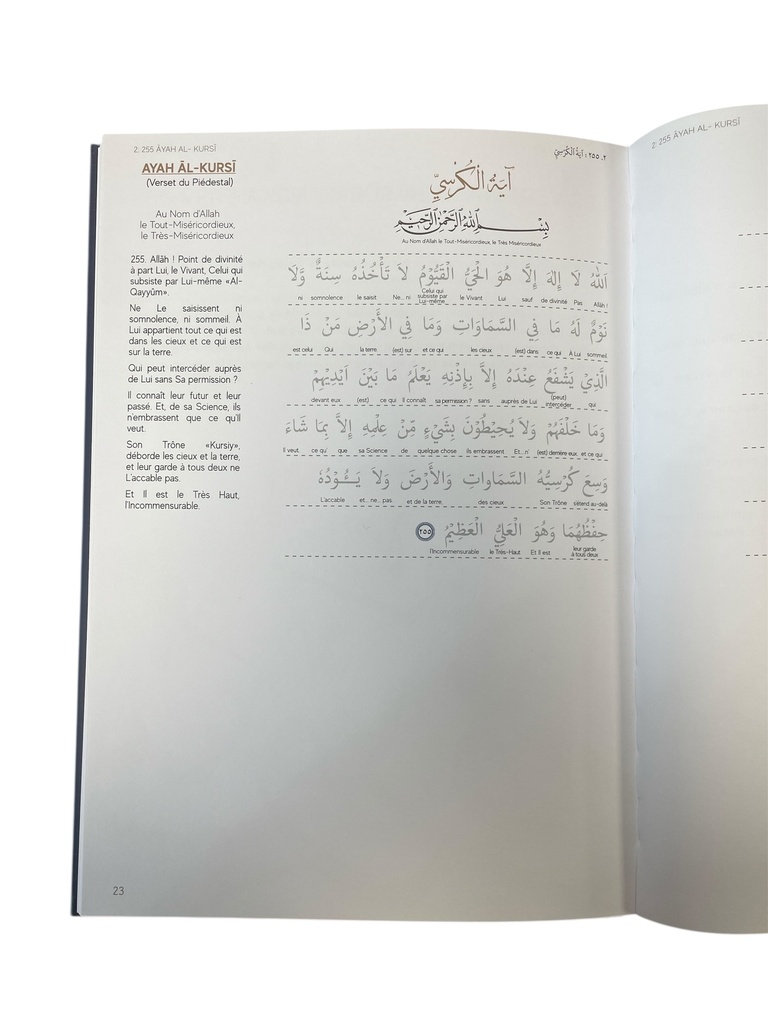 2: 255 ĀYAH AL- KURSĪ
AYAH ĀL-KURSĪ
(Verset du Piédestal)
Au Nom d'Allah
le Tout-Miséricordieux,
le Très-Miséricordieux
255. Allâh ! Point de divinité
à part Lui, le Vivant, Celui qui
subsiste par Lui-même «Al-
Qayyûm».
Ne Le saisissent ni
somnolence, ni sommeil. À
Lui appartient tout ce qui est
dans les cieux et ce qui est
sur la terre.
Qui peut intercéder auprès
de Lui sans Sa permission ?
Il connaît leur futur et leur
passé. Et, de sa Science, ils
n'embrassent que ce qu'Il
veut.
Son Trône «Kursiy»,
déborde les cieux et la terre,
et leur garde à tous deux ne
L'accable pas.
Et Il est le Très Haut,
l'Incommensurable.
٢. ٢٥٥ : آيَةُ الْكُرْسِيِّ
آيَةُ الْكُرْسِيِّ
بِسْمِ اللهِ الرَّحْمٰنِ الرَّحِيْمِ
Au Nom d'Allah le Tout-Miséricordieux, le Très Miséricordieux
اَللهُ لَا إِلٰهَ إِلَّا هُوَ الْحَيُّ الْقَيُّوْمُ لَا تَأْخُذُهُ سِنَةٌ وَّلَا
ni somnolence le saisit Ne... ni Celui qui subsiste par Lui-même le Vivant Lui sauf de divinité Pas Allâh !
نَوْمٌ لَهُ مَا فِي السَّمَاوَاتِ وَمَا فِي الْأَرْضِ مَنْ ذَا
est celui Qui la terre (est) sur et ce qui les cieux (est) dans ce qui À Lui sommeil
الَّذِيْ يَشْفَعُ عِنْدَهُ إِلَّا بِإِذْنِهِ يَعْلَمُ مَا بَيْنَ اَيْدِيْهِمْ
devant eux (est) ce qui Il connaît sa permission ? sans auprès de Lui (peut) intercéder qui
وَمَا خَلْفَهُمْ وَلَا يُحِيْطُوْنَ بِشَيْءٍ مِّنْ عِلْمِهِ إِلَّا بِمَا شَاءَ
Il veut. ce qu' que sa Science de quelque chose ils embrassent Et...n' (est) derrière eux et ce qui
وَسِعَ كُرْسِيُّهُ السَّمَاوَاتِ وَالْأَرْضَ وَلَا يَـُٔـوْدُهُ
L'accable et... ne... pas et de la terre, des cieux Son Trône s'étend au-delà
حِفْظُهُمَا وَهُوَ الْعَلِيُّ الْعَظِيْمُ ٢٥٥
l'Incommensurable le Très-Haut Et Il est leur garde à tous deux
23
2: 255 ĀYAH AL- KURSĪ